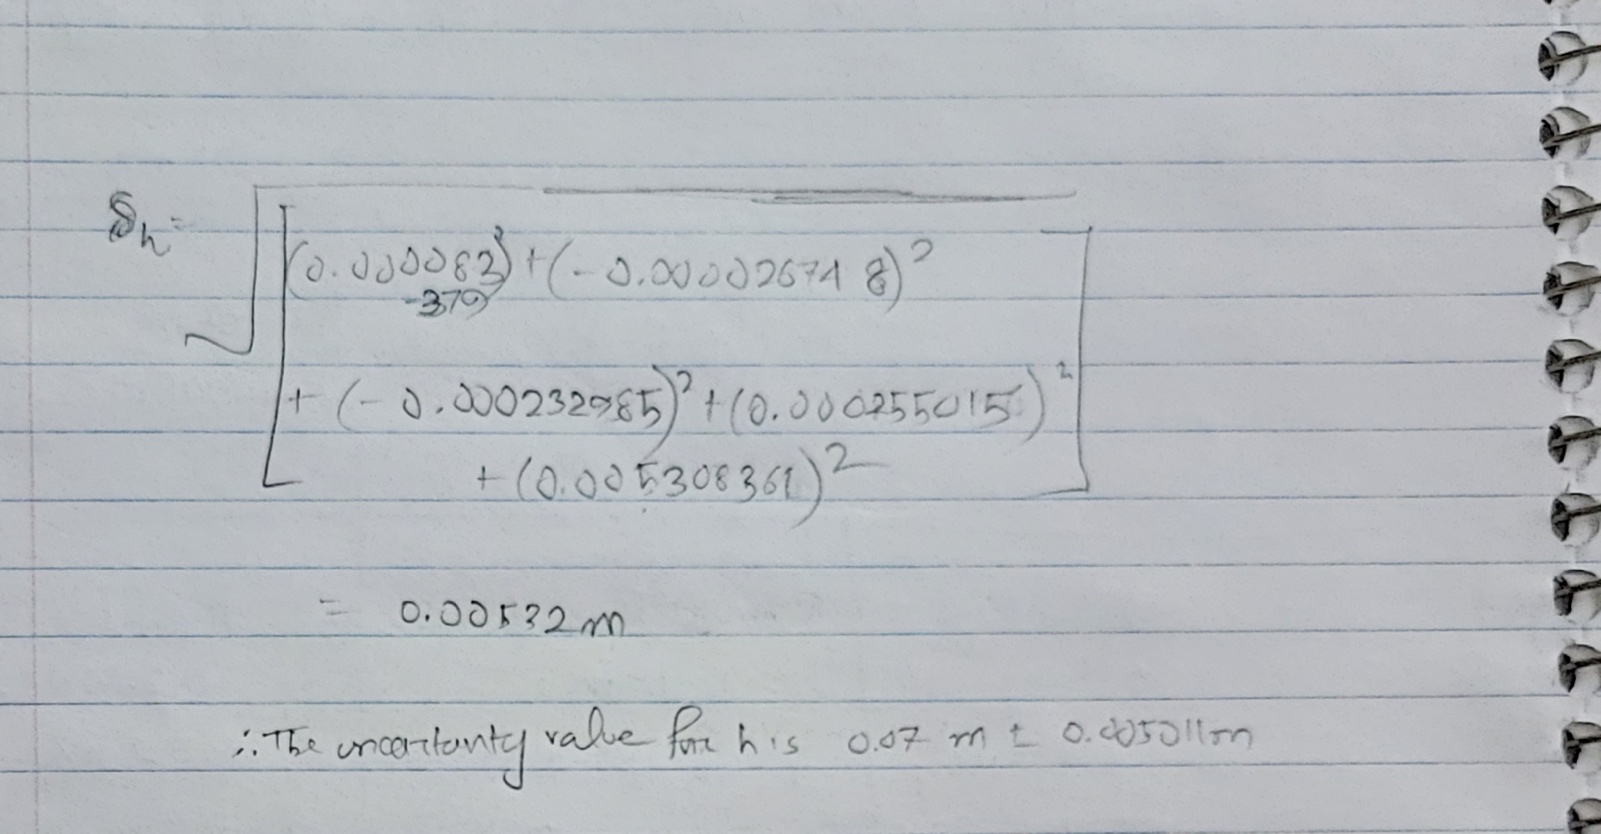 δh = √[(0.000082
-379)² + (-0.000026748)²
+ (-0.000232985)² + (0.000255015)²
+ (0.005308361)²]
= 0.00532 m
∴ The uncertanty value for h is 0.07 m ±